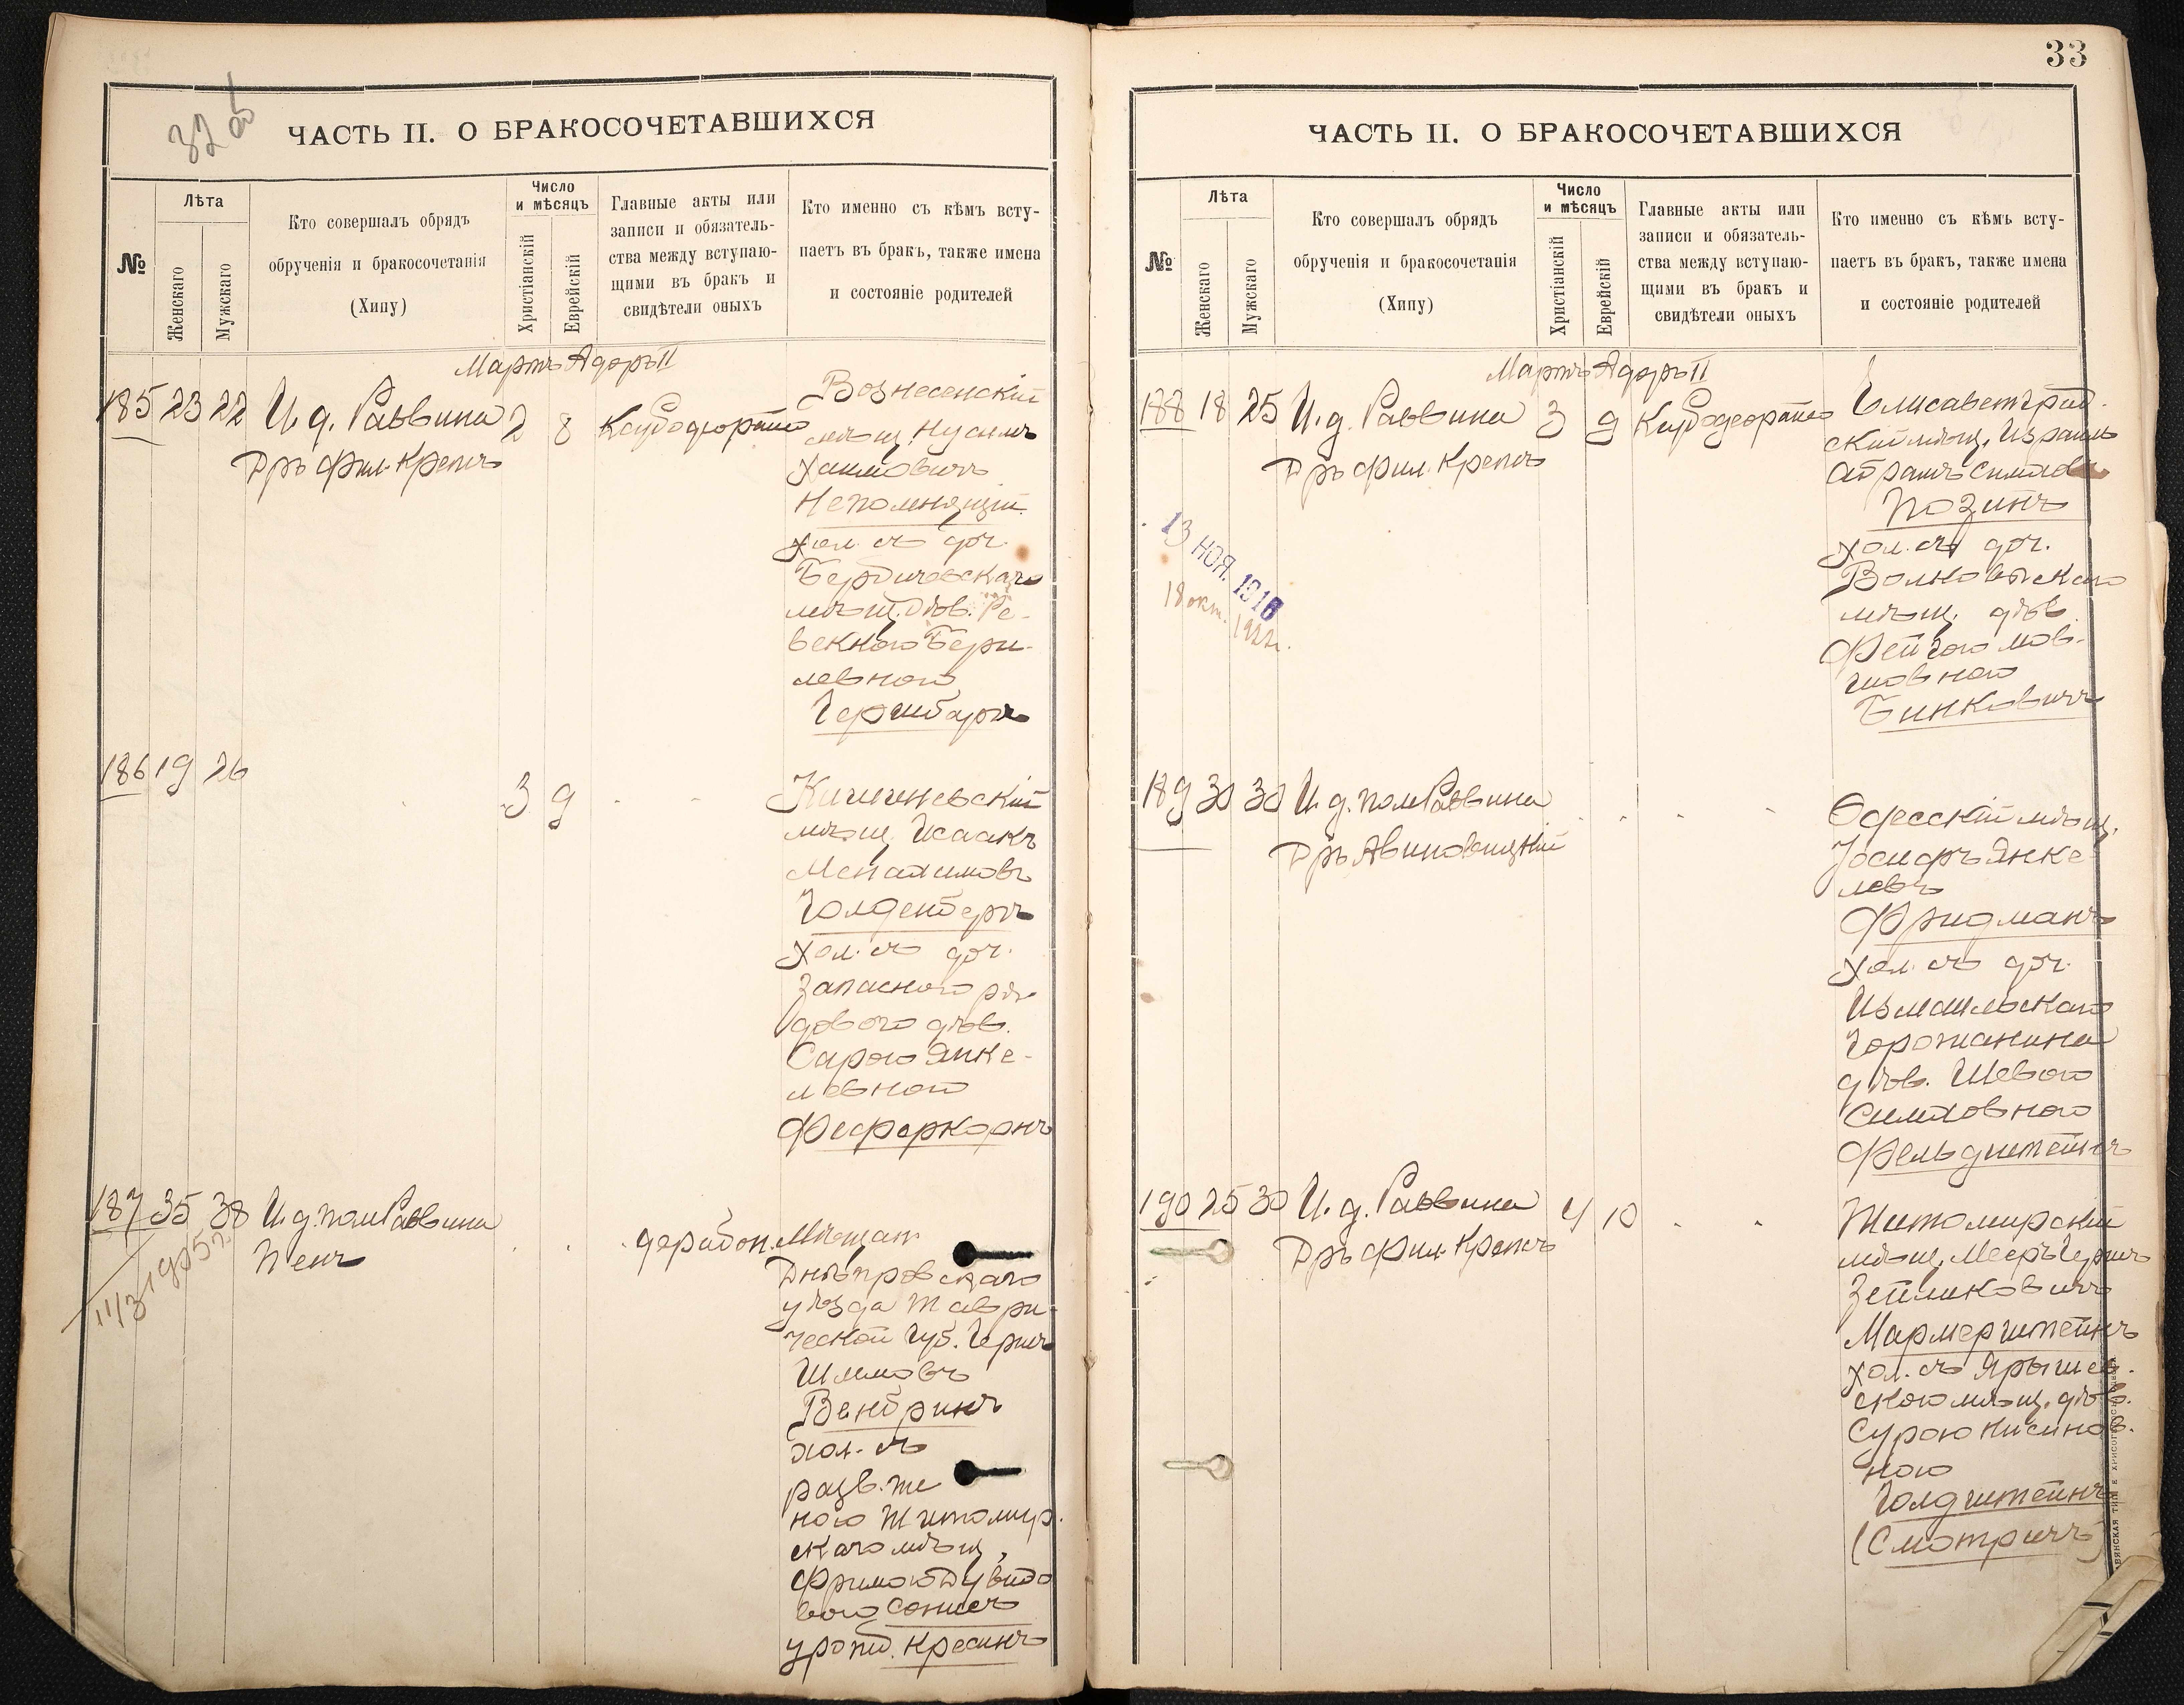 32 об
ЧАСТЬ II. О БРАКОСОЧЕТАВШИХСЯ
№
Лѣта
Женскаго
Мужскаго
Кто совершалъ обрядъ
обрученія и бракосочетанія
(Хипу)
Число
и мѣсяцъ
Христіанскій
Еврейскій
Главные акты или
записи и обязатель-
ства между вступаю-
щими въ бракъ и
свидѣтели оныхъ
Кто именно съ кѣмъ всту-
паетъ въ бракъ, также имена
и состояніе родителей
Мартъ Адаръ II
185 23 22 И. д. Раввина 2 8
Дръ фил. Крепсъ
Вознесенскій
мѣщ. Нусимъ
Хаимовичъ
Непомнящій
хол. съ доч.
Бердичевскаго
мѣщ. дѣв. Ре-
векною Бери-
левною
Гершбаръ
186 19 26 3 9
Кишиневскій
мѣщ. Исаакъ
Менахимовъ
Голденбергъ
хол. съ доч.
запаснаго ря-
дового дѣв.
Сарою Янке-
левною
Феферкорнъ
187 35 38 И. д. пом Раввина
Пенъ
11/3 1905 г.
Мѣщан.
Днѣпровскаго
уѣзда Таври-
ческой губ. Гершъ
Шлимовъ
Вейбринъ
хол. съ
разв. же
ною Житомир.
скаго мѣщ.
Фримою Дувидо
вою
урожд. Кресинъ
33
ЧАСТЬ II. О БРАКОСОЧЕТАВШИХСЯ
№
Лѣта
Женскаго
Мужскаго
Кто совершалъ обрядъ
обрученія и бракосочетанія
(Хипу)
Число
и мѣсяцъ
Христіанскій
Еврейскій
Главные акты или
записи и обязатель-
ства между вступаю-
щими въ бракъ и
свидѣтели оныхъ
Кто именно съ кѣмъ всту-
паетъ въ бракъ, также имена
и состояніе родителей
Мартъ Адаръ II
188 18 25 И. д. Раввина 3 9
Дръ фил. Крепсъ
13 НОЯ. 1916
18 окт. 1922 г.
Елисаветград-
скій мѣщ. Израиль
Абрамъ Симхов
Позинъ
хол. съ доч.
Волковыскаго
мѣщ. дѣв.
Фейгою Мов-
шовною
Бинковичъ
189 30 30 И. д. пом Раввина
Дръ Авиновицкій
Одесскій мѣщ.
Іосифъ Янке
левъ
Фридманъ
хол. съ доч.
Измаильскаго
горожанина
дѣв. Шевою
Симховною
Фельдштейнъ
190 25 30 И. д. Раввина 4 10
Дръ фил. Крепсъ
Житомирскій
мѣщ. Мееръ Гершъ
Зейликовичъ
Мармерштейнъ
хол. съ Ярышев.
скою мѣщ. дѣв.
Сурою Нисинов.
ною
Голдштейнъ
(Смотричъ)